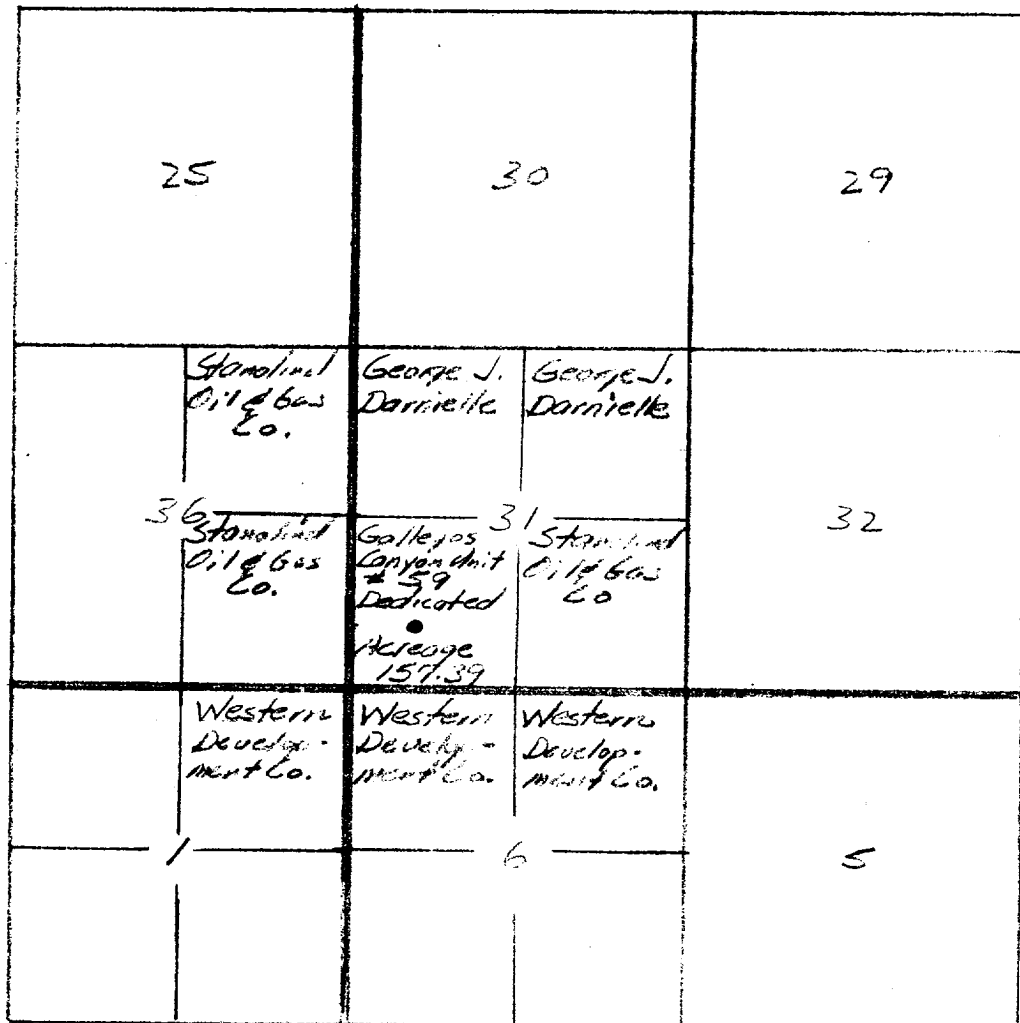 25
30
29
Stanolind
Oil & Gas
Co.
George J.
Darnielle
George J.
Darnielle
36
31
32
Stanolind
Oil & Gas
Co.
Gallegos
Canyon Unit
# 59
Dedicated
Acreage
157.39
Stanolind
Oil & Gas
Co
Western
Develop-
ment Co.
Western
Develop-
ment Co.
Western
Develop-
ment Co.
1
6
5